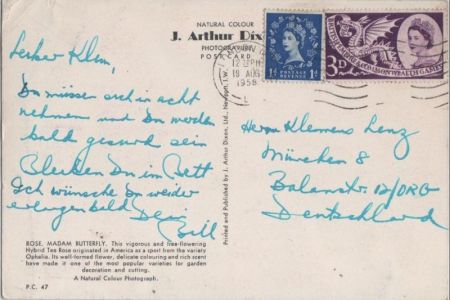 NATURAL COLOUR
J. Arthur Dix
PHOTOGRAVURE
POST CARD
12 PM
19 AUG
1958
POSTAGE REVENUE
1D 1D
3D
Lieber Klem,
Du müssen sich in acht
nehmen und Du werden
bald gesund sein
Bleiben Du im Bett
Ich wünsche Du wieder
bald Dein
Bill
Herrn Klemens Lenz
München 8
Balanstr. 12/0RG
Deutschland
Printed and Published by J. Arthur Dixon, Ltd., Newport,
ROSE, MADAM BUTTERFLY. This vigorous and free-flowering
Hybrid Tea Rose originated in America as a sport from the variety
Ophelia. Its well-formed flower, delicate colouring and rich scent
have made it one of the most popular varieties for garden
decoration and cutting.
A Natural Colour Photograph.
P.C. 47